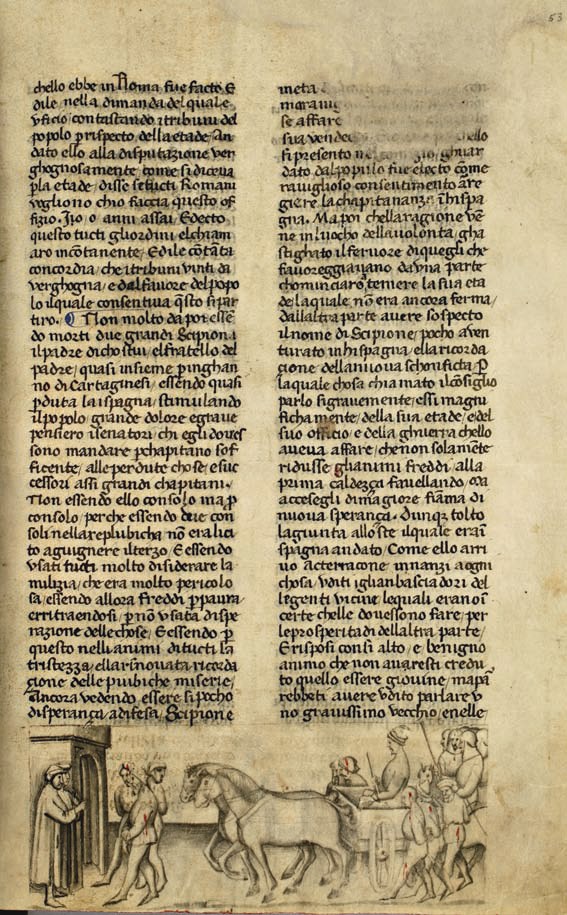 53
chello ebbe in Roma fue facto E
dile nella dimanda del quale
vficio contastando i tribuni del
popolo p rispecto della etade An
dato ello alla disputazione ver
ghognosamente come si diceua
p la etade disse se tucti Romani
vogliono chio faccia questo of
fizio. Io o anni assai. E decto
questo tucti gli ordini el chiam
aro incōtanente Edile cō tāta
concordia che i tribuni vinti da
verghogna e dal fauore del popo
lo il quale consentiua q̄sto si par
tiro. Non molto da poi essē
do morti due grandi Scipioni
il padre di chostui el fratello del
padre quasi insieme p inghan
no di Cartaginesi essendo quasi
p duta la ispagna stimulando
il popolo grande dolore e graue
pensiero i senatori chi egli doues
sono mandare p chapitano sof
ficente alle perdute chose e suc
cessori assi grandi chapitani.
Non essendo ello consolo ma p
consolo perche essendo due con
soli nella republicha nō era lici
to agiugnere il terzo E essendo
vsati tucti molto disiderare la
milizia che era molto pericolo
sa essendo allora freddi p paura
e ritraendosi p nō vsata dispe
razione delle chose E essendo p
questo nelli animi di tucti la
tristezza e lla rinouata ricorda
çione delle publiche miserie
Ancora vedendo essere si pocho
di sperança a difesa Scipione
meta
moranu
se affare
sua ven
si presento
dato dal popolo fue electo cōme
rauiglioso consentimento a re
giere la chapitananza i hispa
gna. Ma poi che lla ragione vē
ne in luocho della volonta gha
stighato il feruore di quegli che
fauoreggiauano da vna parte
chominciaro temere la sua eta
de la quale nō era ancora ferma
dall altra parte auere sospecto
il nome di Scipione pocho auen
turato in hispagna e lla ricorda
çione della nuoua schonficta P
la quale chosa chiamato il cōsiglio
parlo si grauemente essi magni
fichamente della sua etade e del
suo officio e della ghuerra che llo
aueua affare che non solamēte
ridusse gli animi freddi alla
prima caldezza fauellando ma
accesegli di magiore fiāma di
nuoua sperança. Dunq tolto
la giunta all oste il quale era i
spagna andato Come ello arri
uo a Terracone innanzi a ogni
chosa vditi igli anbasciadori del
le genti vicine le quali erano i
certe che lle douessono fare per
le prosperita di dell altra parte
E risposi con si alto e benigno
animo che non auaresti credu
to quello essere giouine ma pa
rebbeti auere vdito parlare v
no grauissimo vecchio e nelle